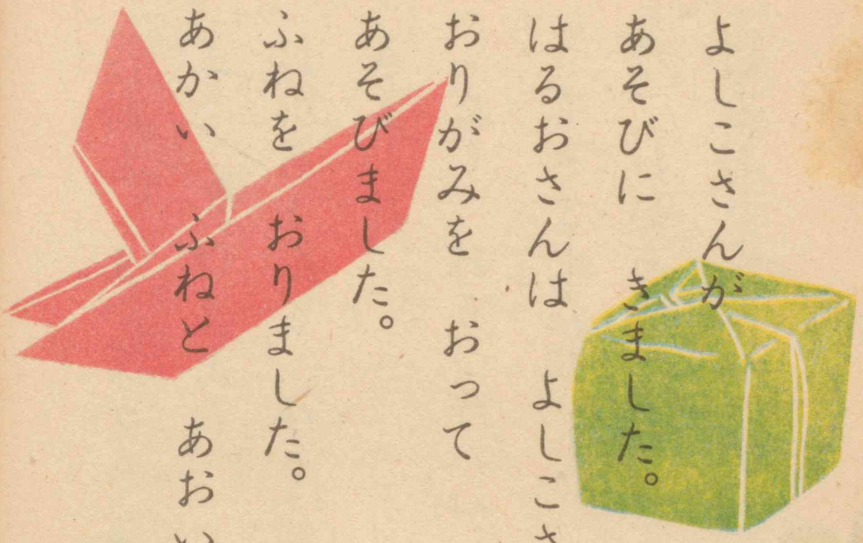 よしこさんが
あそびに　きました。
はるおさんは　よしこ
おりがみを　おって
あそびました。
ふねを　おりました。
あかい　ふねと　あおい